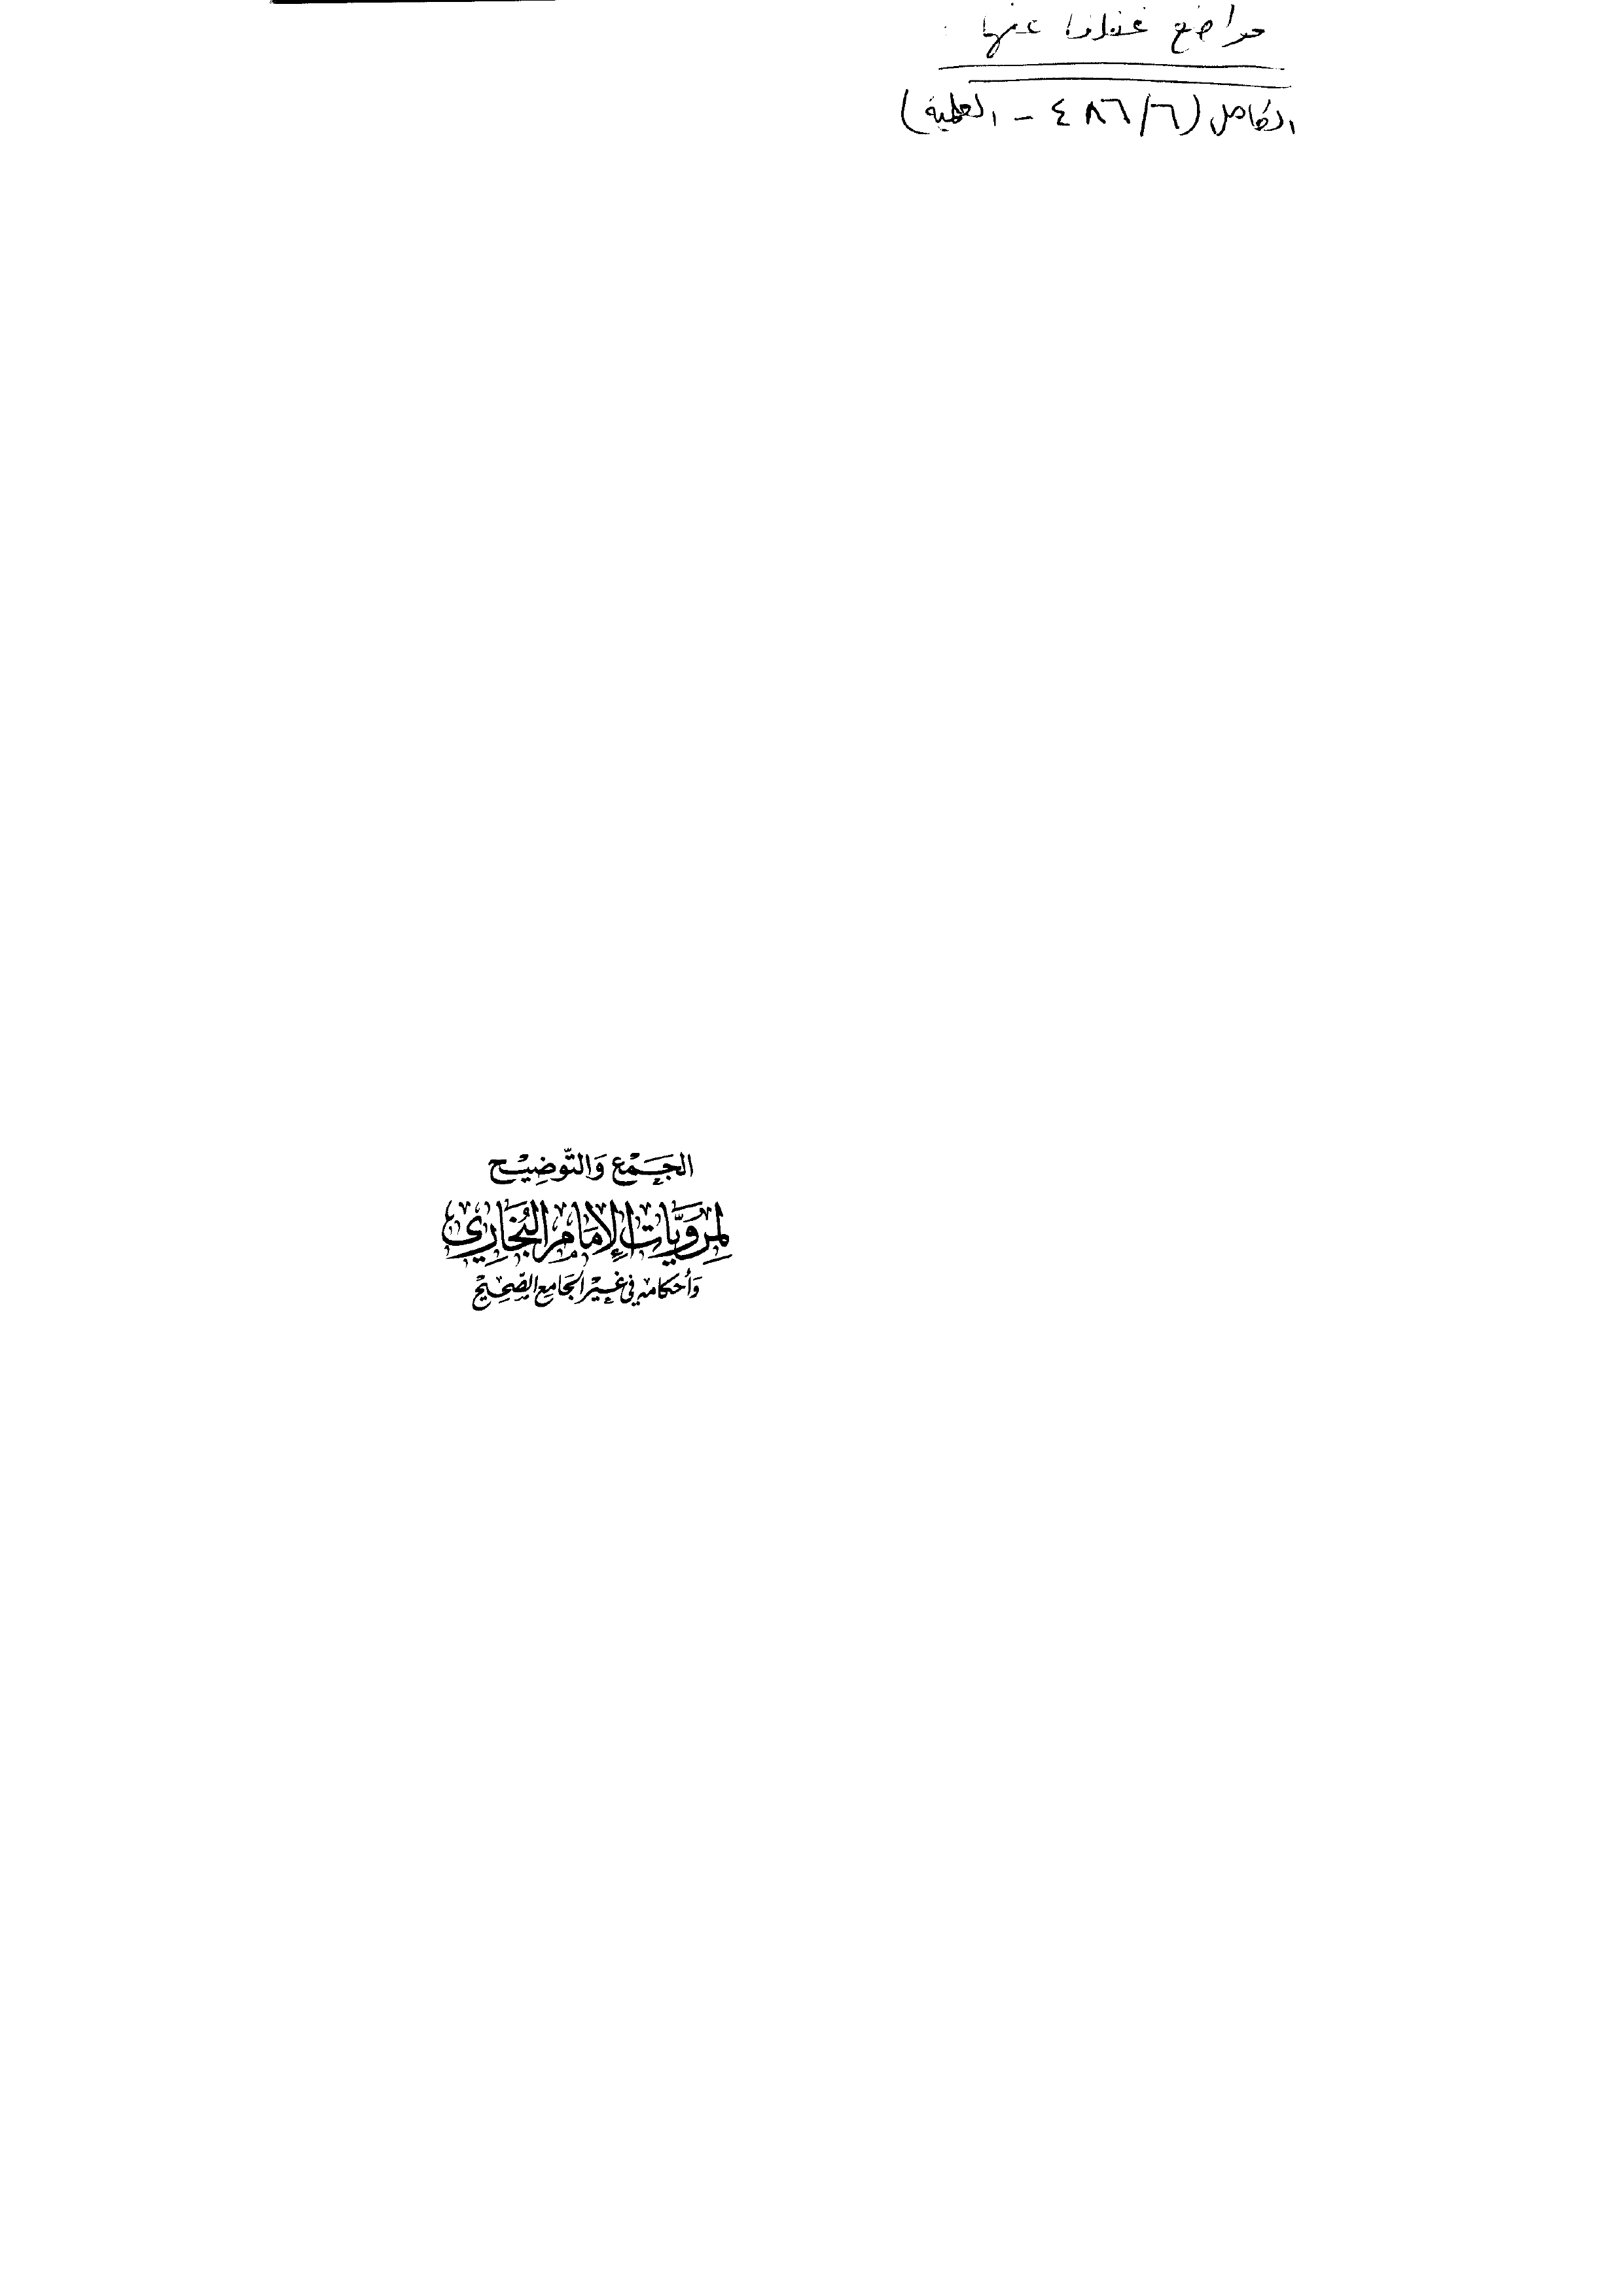 مواضع غفلنا عنها
الكامل (٤٨٦/٦ - العلمية)
الجَمْع وَالتَّوضِيْح
لِمَرْوِيَّاتِ الإِمَامِ البُخَارِي
وَأَحْكَامِهِ فِي غَيْرِ الجَامِعِ الصَّحِيْحِ